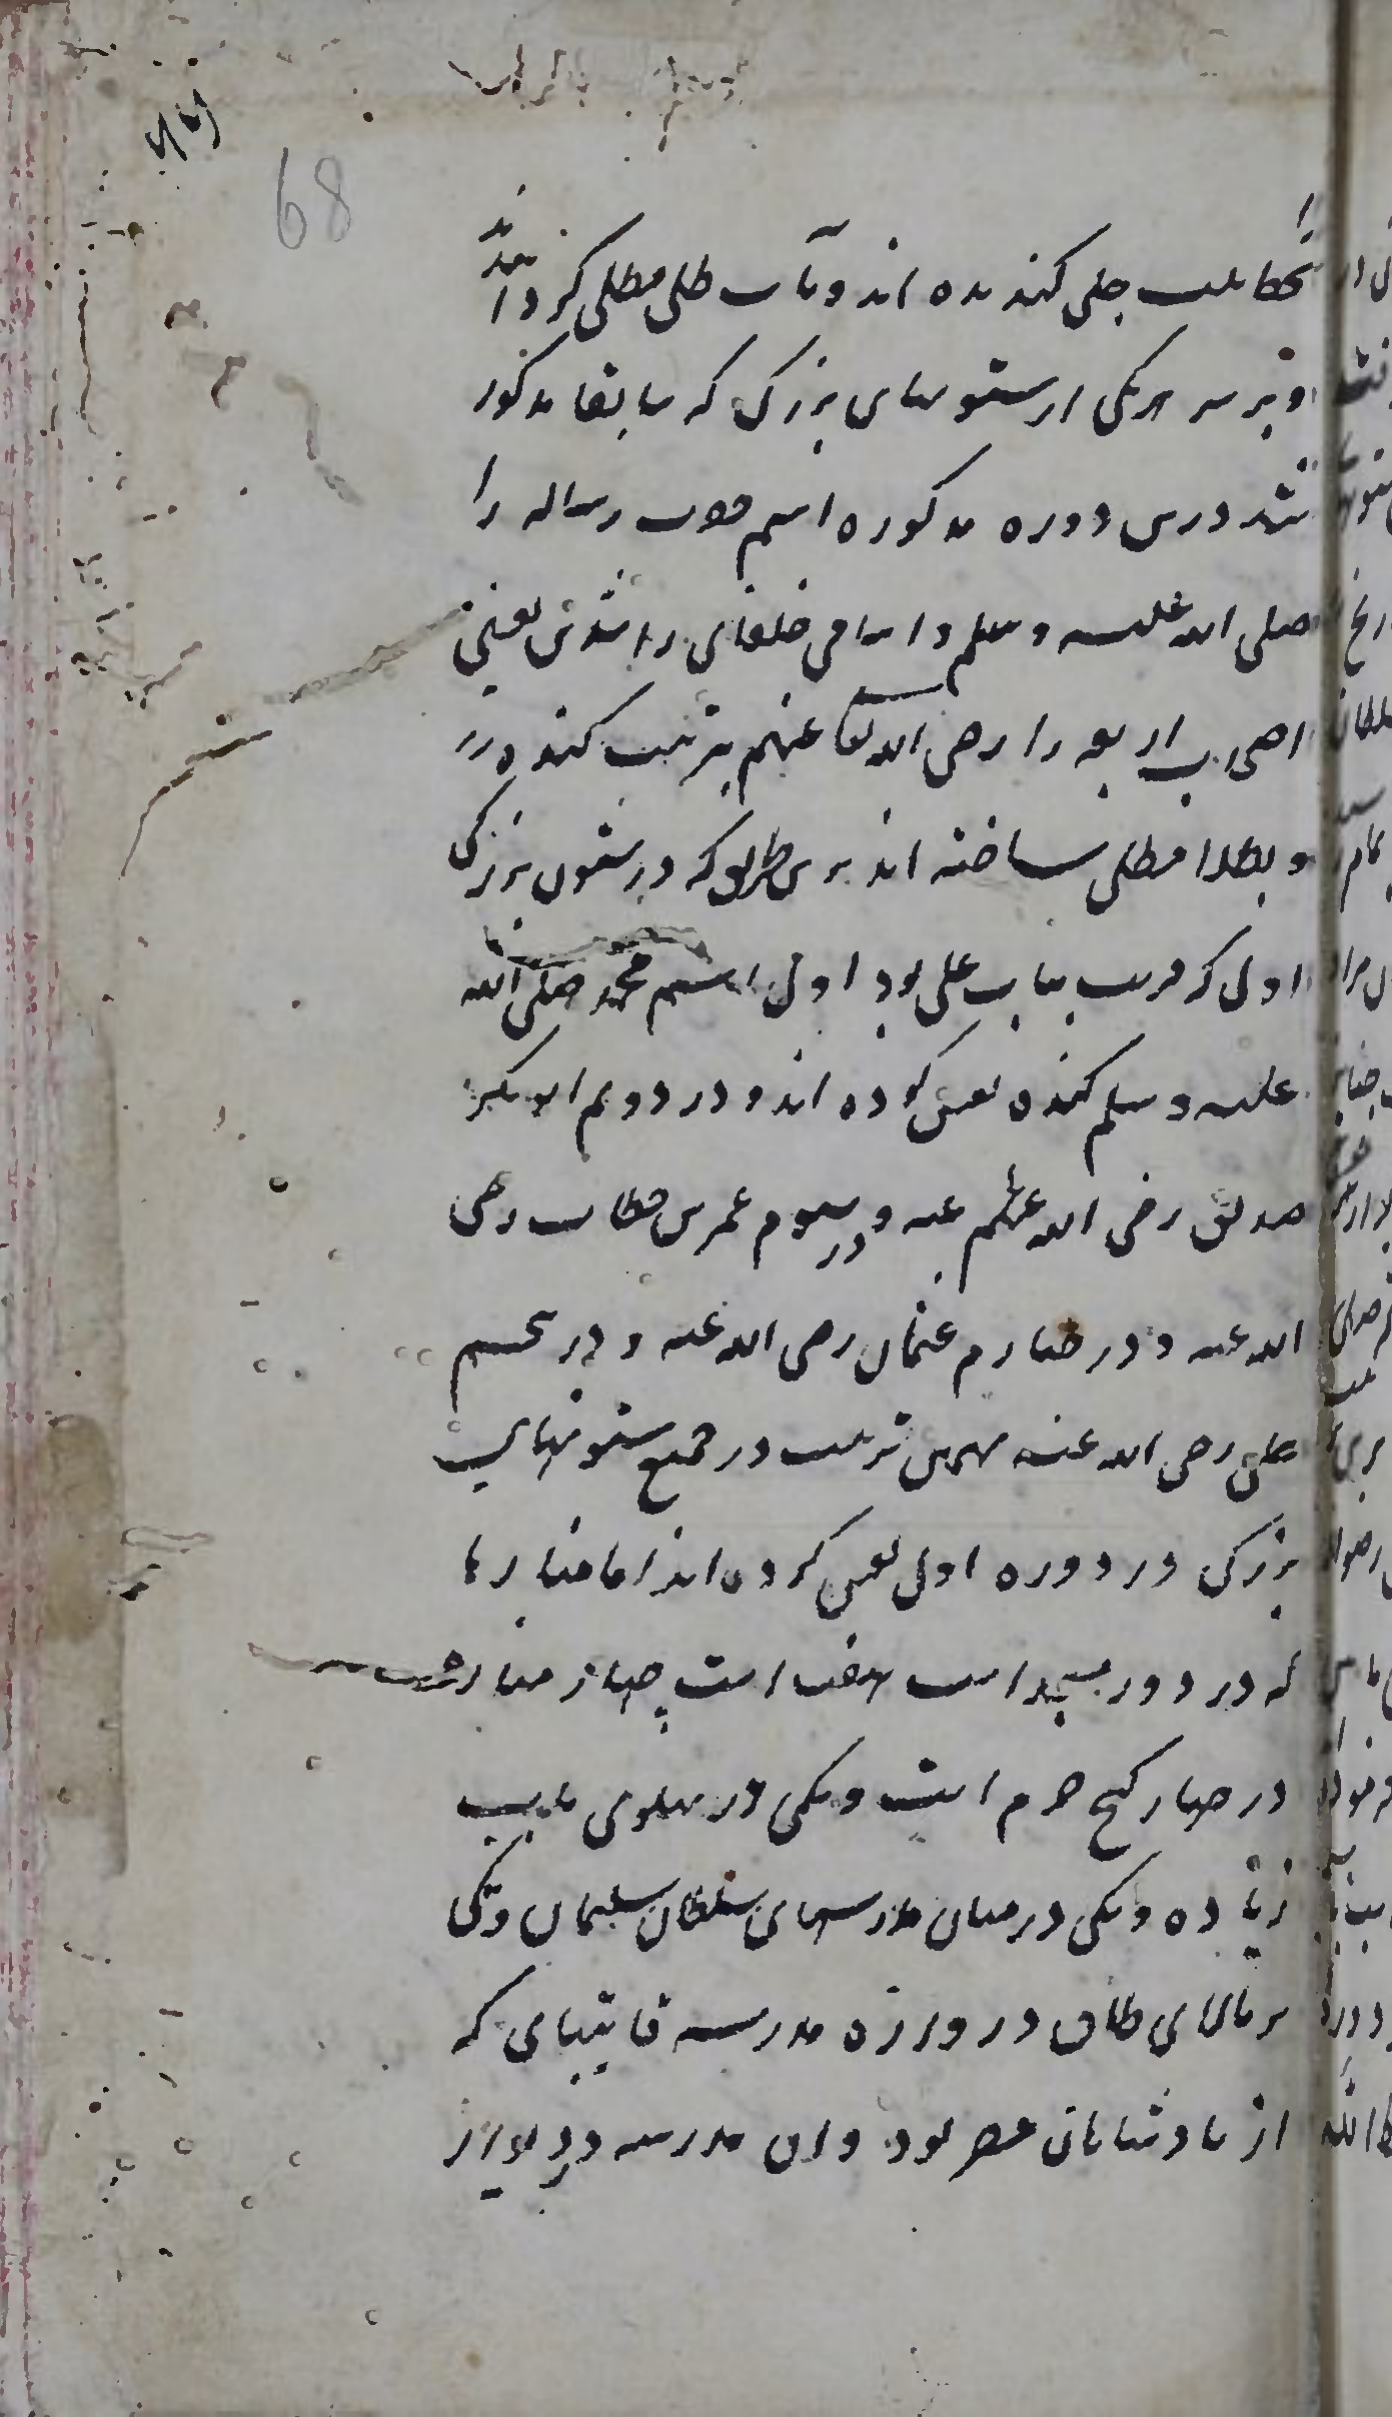 68
بخط ثلث جلی کنده اند و بآب طلی مطلی کرده اند
و بر سر هر یکی از ستونهای بزرگی که سابقا مذکور
شد درین دوره مذکوره اسم حضرت رساله را
صلی الله علیه وسلم و اسامی خلفای راشدین یعنی
اصحاب اربعه را رضی الله تعا عنهم بترتیب کنده
و بطلا مطلی ساخته اند برین طریق که در ستون بزرگی
اول که قریب بباب علی بود اول اسم محمد صلی الله
علیه وسلم کنده نقش کرده اند و در دویم ابو بکر
صدیق رضی الله عنه و در سیوم عمر بن خطاب رضی
الله عنه و در چهارم عثمان رضی الله عنه و در پنجم
علی رضی الله عنه بهمین ترتیب در جمیع ستونهای
بزرگی در دوره اول نقش کرده اند اما منارها
که در دور مسجد است هفت است چهار مناره
در چهار کنج حرم است و یکی در پهلوی باب
زیاده و یکی در میان مدرسهای سلطان سلیمان و یکی
بر بالای طاق دروازه مدرسه قایتبای که
از پادشاهان مصر بود و این مدرسه در دیوار